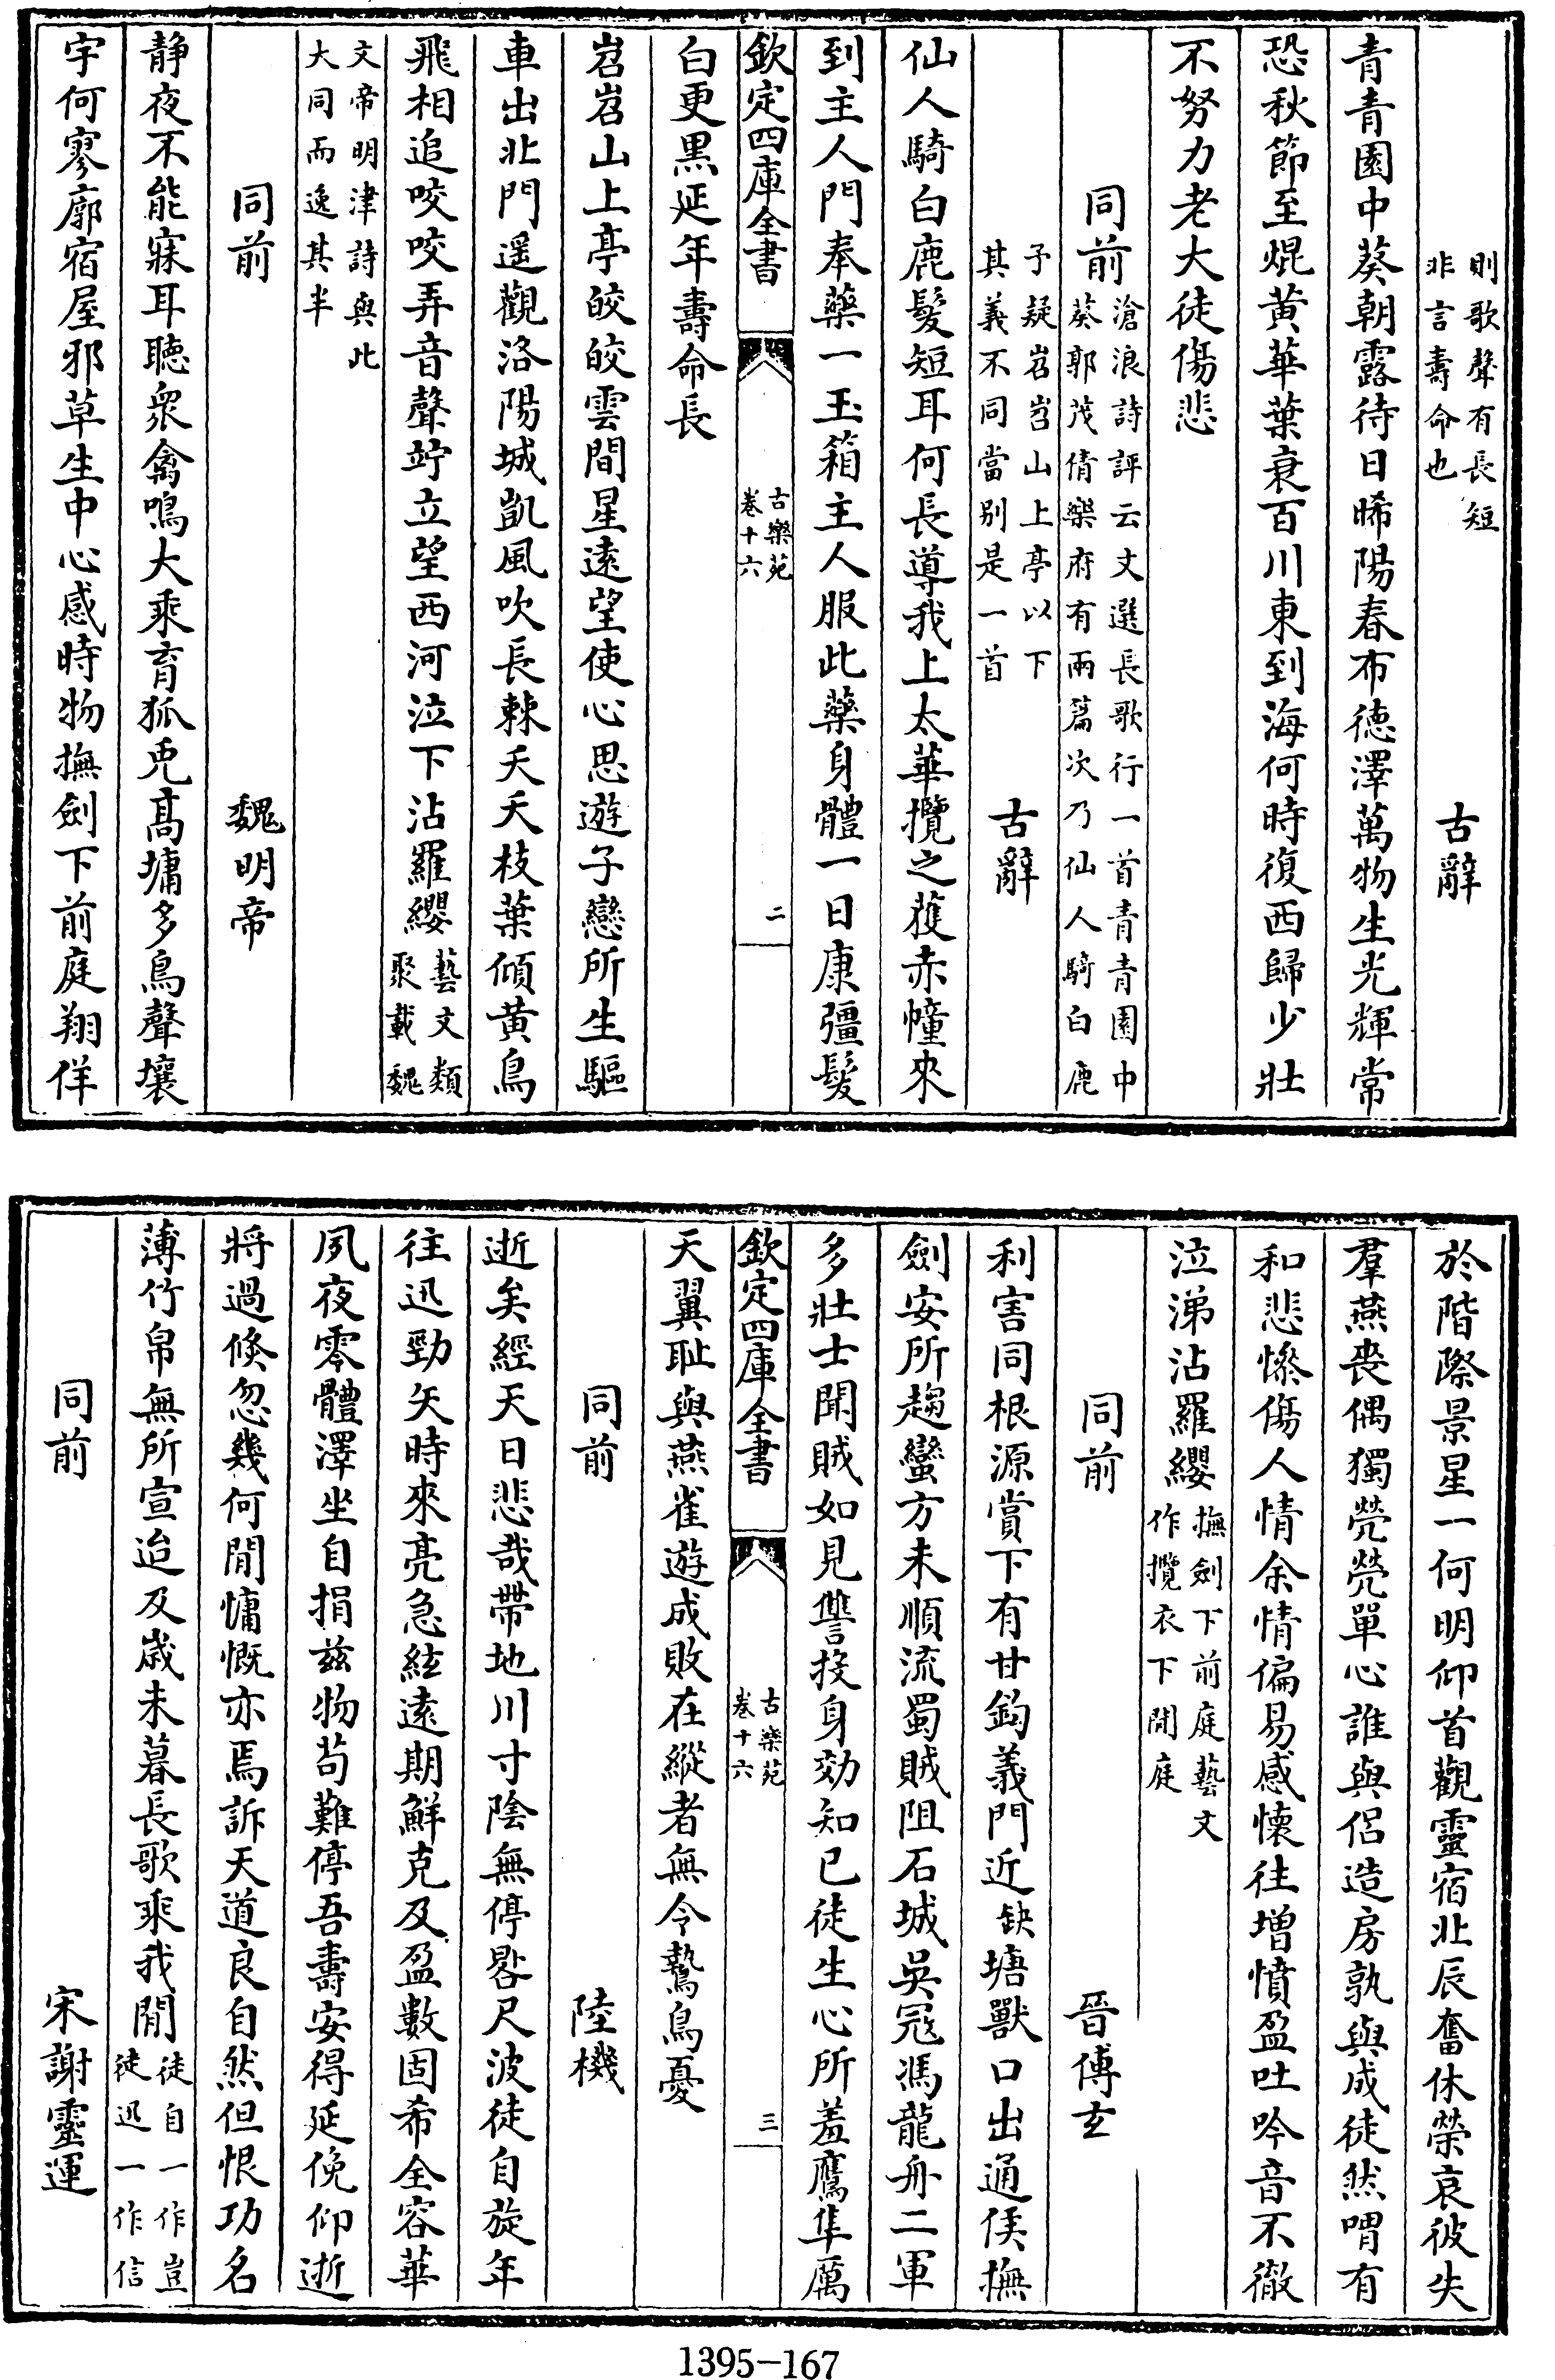 則歌聲有長短
非言壽命也
古辭
青青園中葵朝露待日晞陽春布徳澤萬物生光輝常
恐秋節至焜黄華葉衰百川東到海何時復西歸少壯
不努力老大徒傷悲
同前
滄浪詩評云文選長歌行一首青青園中
葵郭茂倩樂府有兩篇次乃仙人騎白鹿
子疑岧岧山上亭以下
其義不同當别是一首
古辭
仙人騎白鹿髮短耳何長導我上太華攬之獲赤幢來
到主人門奉藥一玉箱主人服此藥身體一日康彊髮
欽定四庫全書
古樂苑
卷十六
二
白更黒延年壽命長
岧岧山上亭皎皎雲間星遠望使心思遊子戀所生驅
車出北門遥觀洛陽城凱風吹長棘夭夭枝葉傾黄鳥
飛相追咬咬弄音聲竚立望西河泣下沾羅纓
藝文類
聚載魏
文帝明津詩與此
大同而逸其半
同前
魏明帝
静夜不能寐耳聽衆禽鳴大乘育狐兎髙墉多鳥聲壤
宇何寥廓宿屋邪草生中心感時物撫劍下前庭翔佯
於階際景星一何明仰首觀靈宿北辰奮休榮哀彼失
羣燕喪偶獨煢煢單心誰與侣造房孰與成徒然喟有
和悲慘傷人情余情偏易感懷往増憤盈吐吟音不徹
泣涕沾羅纓
撫劍下前庭藝文
作攬衣下閒庭
同前
晉傅玄
利害同根源賞下有甘鈎義門近缺塘獸口出通侯撫
劍安所趨蠻方未順流蜀賊阻石城吳冦馮龍舟二軍
多壯士聞賊如見讐投身効知已徒生心所羞鷹隼厲
欽定四庫全書
古樂苑
卷十六
三
天翼耻與燕雀遊成敗在縱者無令鷙鳥憂
同前
陸機
逝矣經天日悲哉帶地川寸陰無停晷尺波徒自旋年
往迅勁矢時來亮急絃遠期鮮克及盈數固希全容華
夙夜零體澤坐自捐兹物苟難停吾壽安得延俛仰逝
將過倐忽幾何間慷慨亦焉訴天道良自然但恨功名
薄竹帛無所宣迨及嵗未暮長歌乘我閒
徒自一作豈
徒迅一作信
同前
宋謝靈運
1395-167